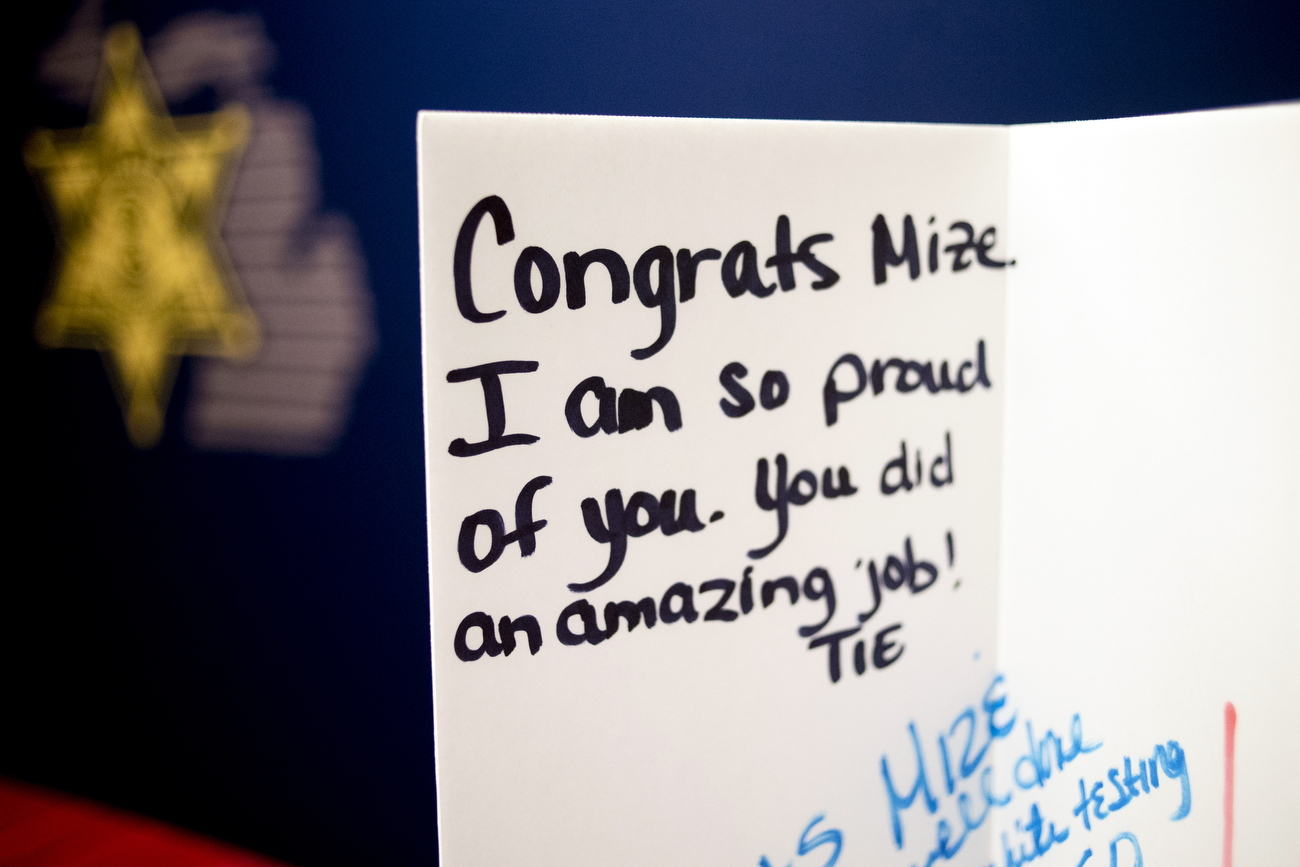 Congrats Mize.
I am so proud
of you. You did
an amazing job!
TIE
MIZE
well done
testing